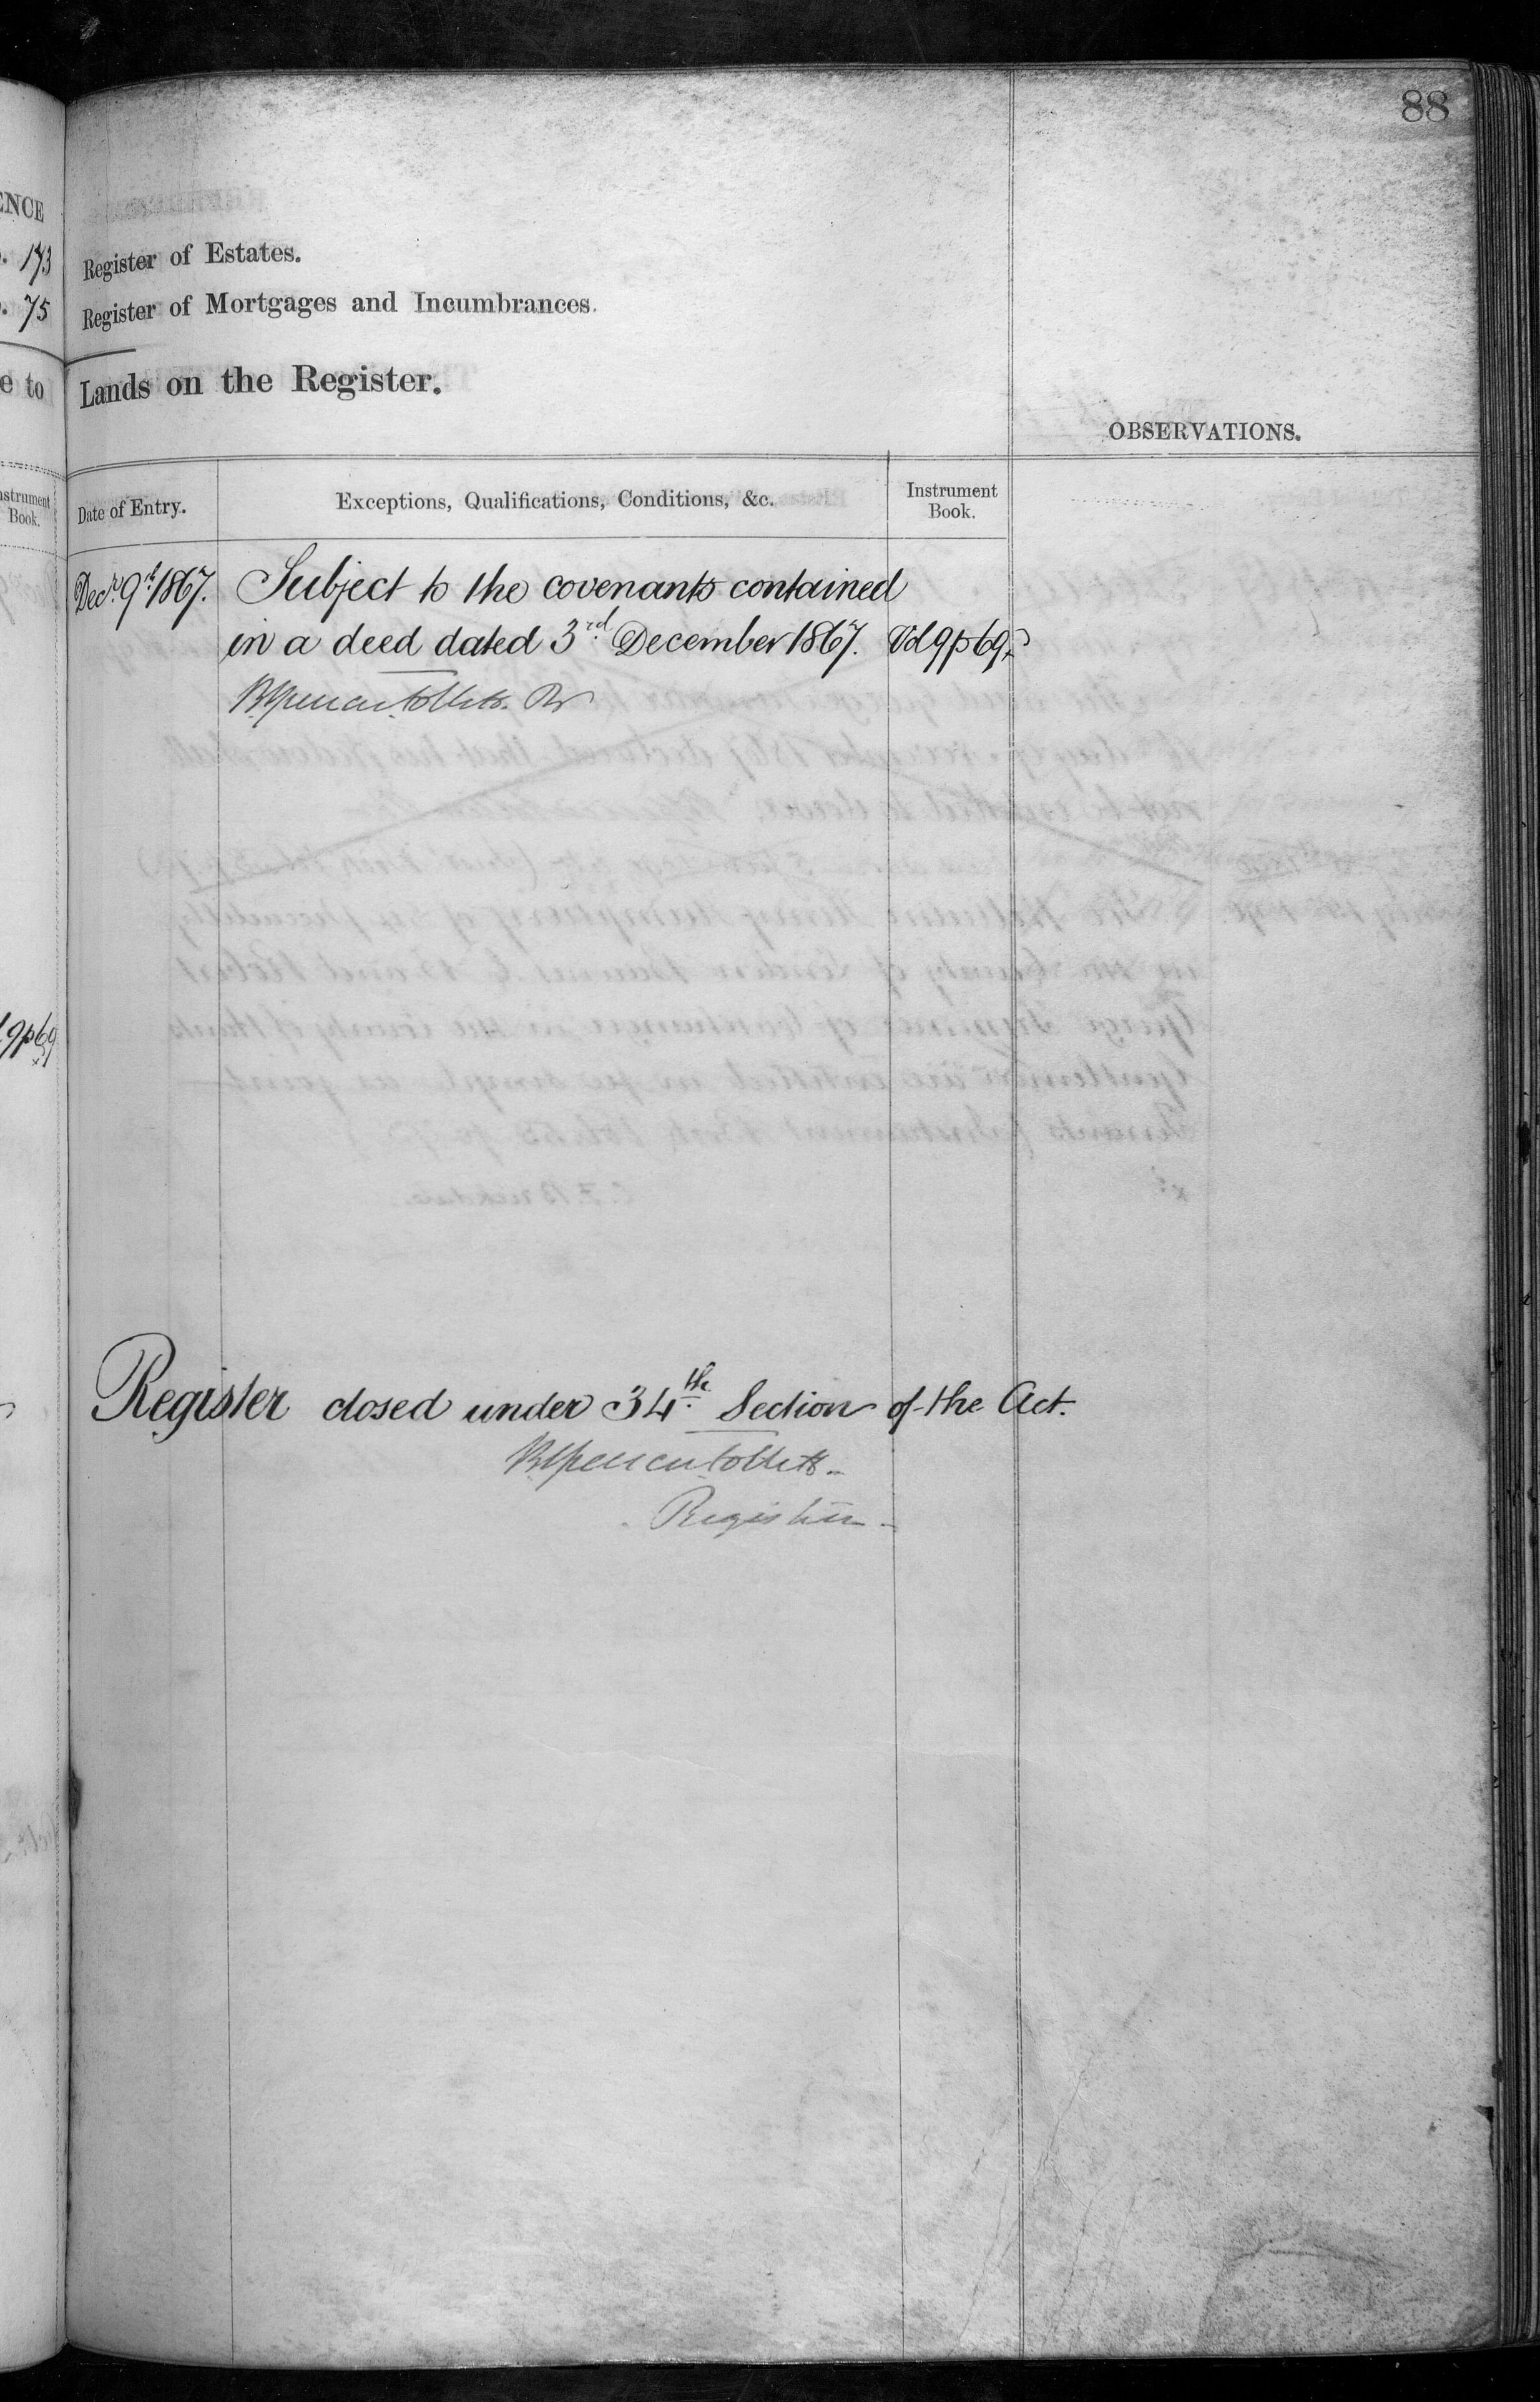 88
ENCE
173
75
e to
Instrument
Book.
9p69
Register of Estates.
Register of Mortgages and Incumbrances.
Lands on the Register.
OBSERVATIONS.
Date of Entry.
Exceptions, Qualifications, Conditions, &c.
Instrument
Book.
Decr. 9th 1867. Subject to the covenants contained
in a deed dated 3rd December 1867. Vol 9 p 69
Register closed under 34th Section of the Act.
Registrar